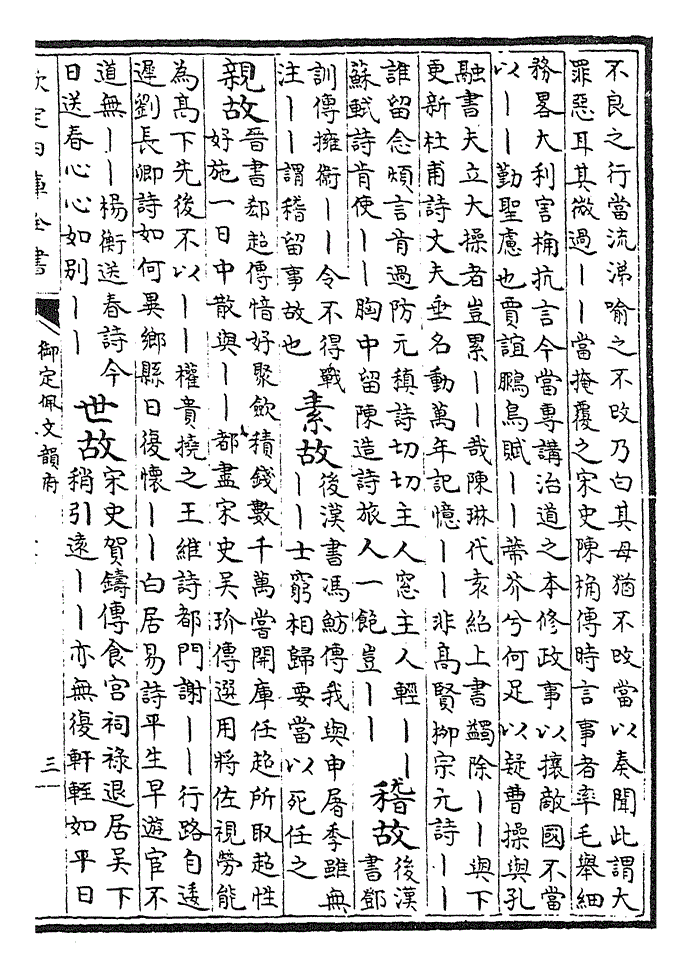 不良之行當流涕喻之不改乃白其母猶不改當以奏聞此謂大
罪惡耳其微過丨丨當掩覆之宋史陳桷傳時言事者率毛舉細
務畧大利害桷抗言今當專講治道之本修政事以攘敵國不當
以丨丨勤聖慮也賈誼鵩鳥賦丨丨蔕芥兮何足以疑曹操與孔
融書夫立大操者豈累丨丨哉陳琳代袁紹上書蠲除丨丨與下
更新杜甫詩丈夫垂名動萬年記憶丨丨非髙賢柳宗元詩丨丨
誰留念煩言肯過防元稹詩切切主人窓主人輕丨丨
蘇軾詩肯使丨丨胸中留陳造詩旅人一飽豈丨丨
稽故
後漢
書鄧
訓傳擁衛丨丨令不得戰
注丨丨謂稽留事故也
素故
後漢書馮魴傳我與申屠季雖無
丨丨士窮相歸要當以死任之
親故
晉書郄超傳愔好聚歛積錢數千萬嘗開庫任超所取超性
好施一日中散與丨丨都盡宋史吴玠傳選用將佐視勞能
為髙下先後不以丨丨權貴撓之王維詩都門謝丨丨行路自逶
遲劉長卿詩如何異鄉縣日復懷丨丨白居易詩平生早遊宦不
道無丨丨楊衡送春詩今
日送春心心如别丨丨
世故
宋史賀鑄傳食宫祠祿退居吴下
稍引遠丨丨亦無復軒輊如平日
欽定四庫全書
御定佩文韻府
三